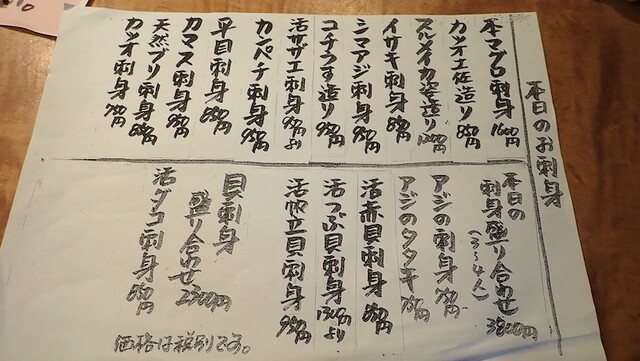 本日のお刺身
本マグロ刺身 1600円
カツオ土佐造り 850円
スルメイカ姿造り 1200円
イサキ刺身 850円
シマアジ刺身 950円
コチうす造り 950円
活サザエ刺身 950円より
カンパチ刺身 950円
平目刺身 850円
カマス刺身 950円
天然ブリ刺身 850円
カツオ刺身 750円
本日の
刺身盛り合わせ 3800円
(3〜4人)
アジの刺身 750円
アジのタタキ 750円
活赤貝刺身 850円
活つぶ貝刺身 1300円より
活帆立貝刺身 950円
貝刺身
盛り合わせ 2300円
活ダコ刺身 850円
価格は税別です。